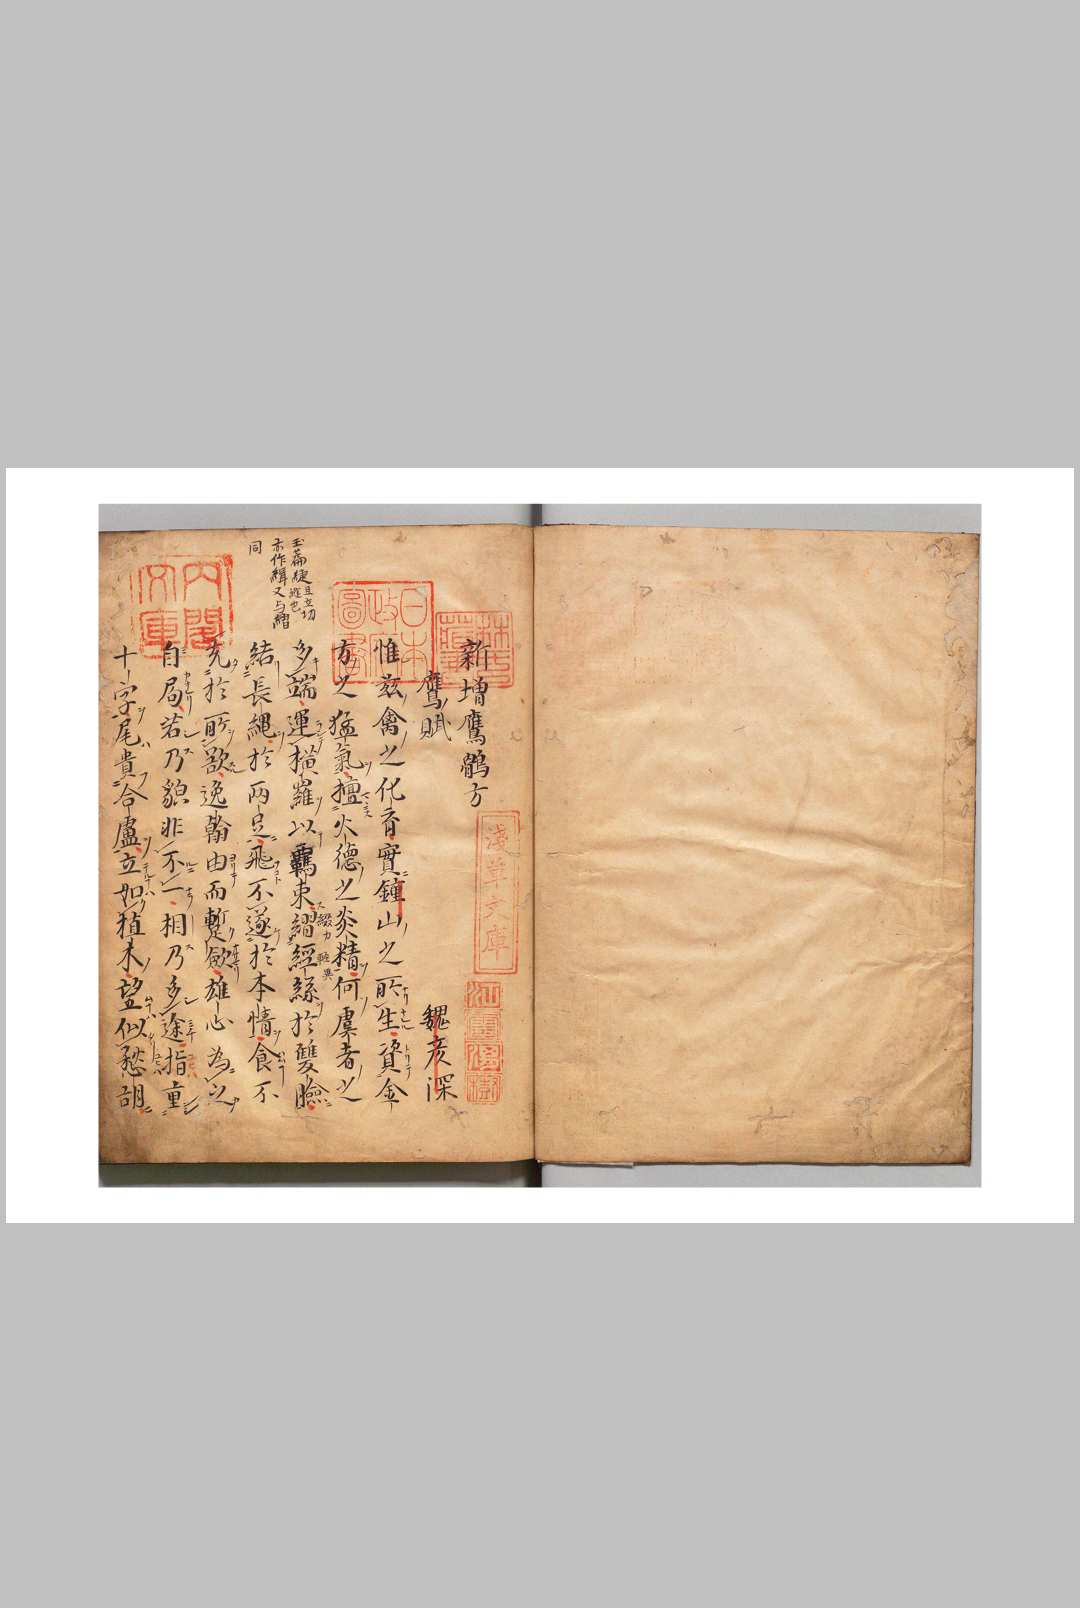 新增鷹鶻方
鷹賦 魏彦深
惟茲禽之化育實鍾山之所生資金
方之猛氣擅火德之炎精何虞者之
多端運横羅以羈束緝輕絲於雙瞼
結長繩於兩足飛不遂於本情食不
充於所欲逸翰由而暫歛雄心為之
自局若乃貌非不一相乃多途指重
十字尾貴合盧立如植木望似愁胡
玉篇緁且立切
亦作緝又与緝
同
日本
政府
圖書
淺草文庫
内閣
文庫
江雲渭樹